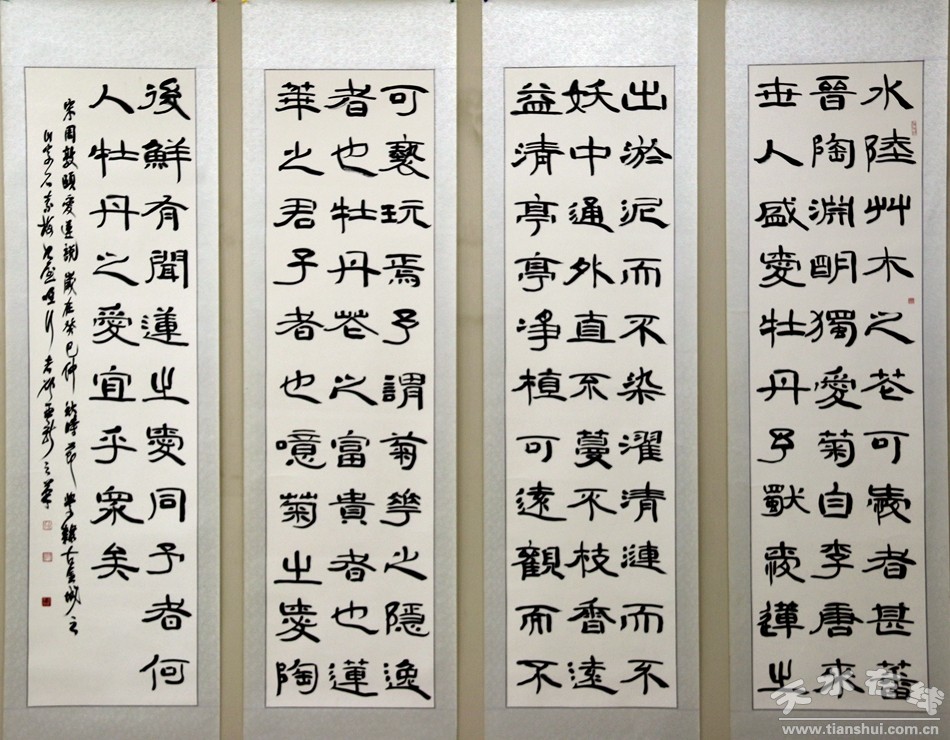 水陸艸木之花可愛者甚蕃
晉陶淵明獨愛菊自李唐來
世人盛愛牡丹予獨愛蓮之
出淤泥而不染濯清漣而不
妖中通外直不蔓不枝香遠
益清亭亭净植可遠觀而不
可褻玩焉予謂菊華之隱逸
者也牡丹花之富貴者也蓮
華之君子者也噫菊之愛陶
後鮮有聞蓮之愛同予者何
人牡丹之愛宜乎衆矣
宋周敦頤愛蓮説歲在癸巳仲秋時節
天水在线
www.tianshui.com.cn